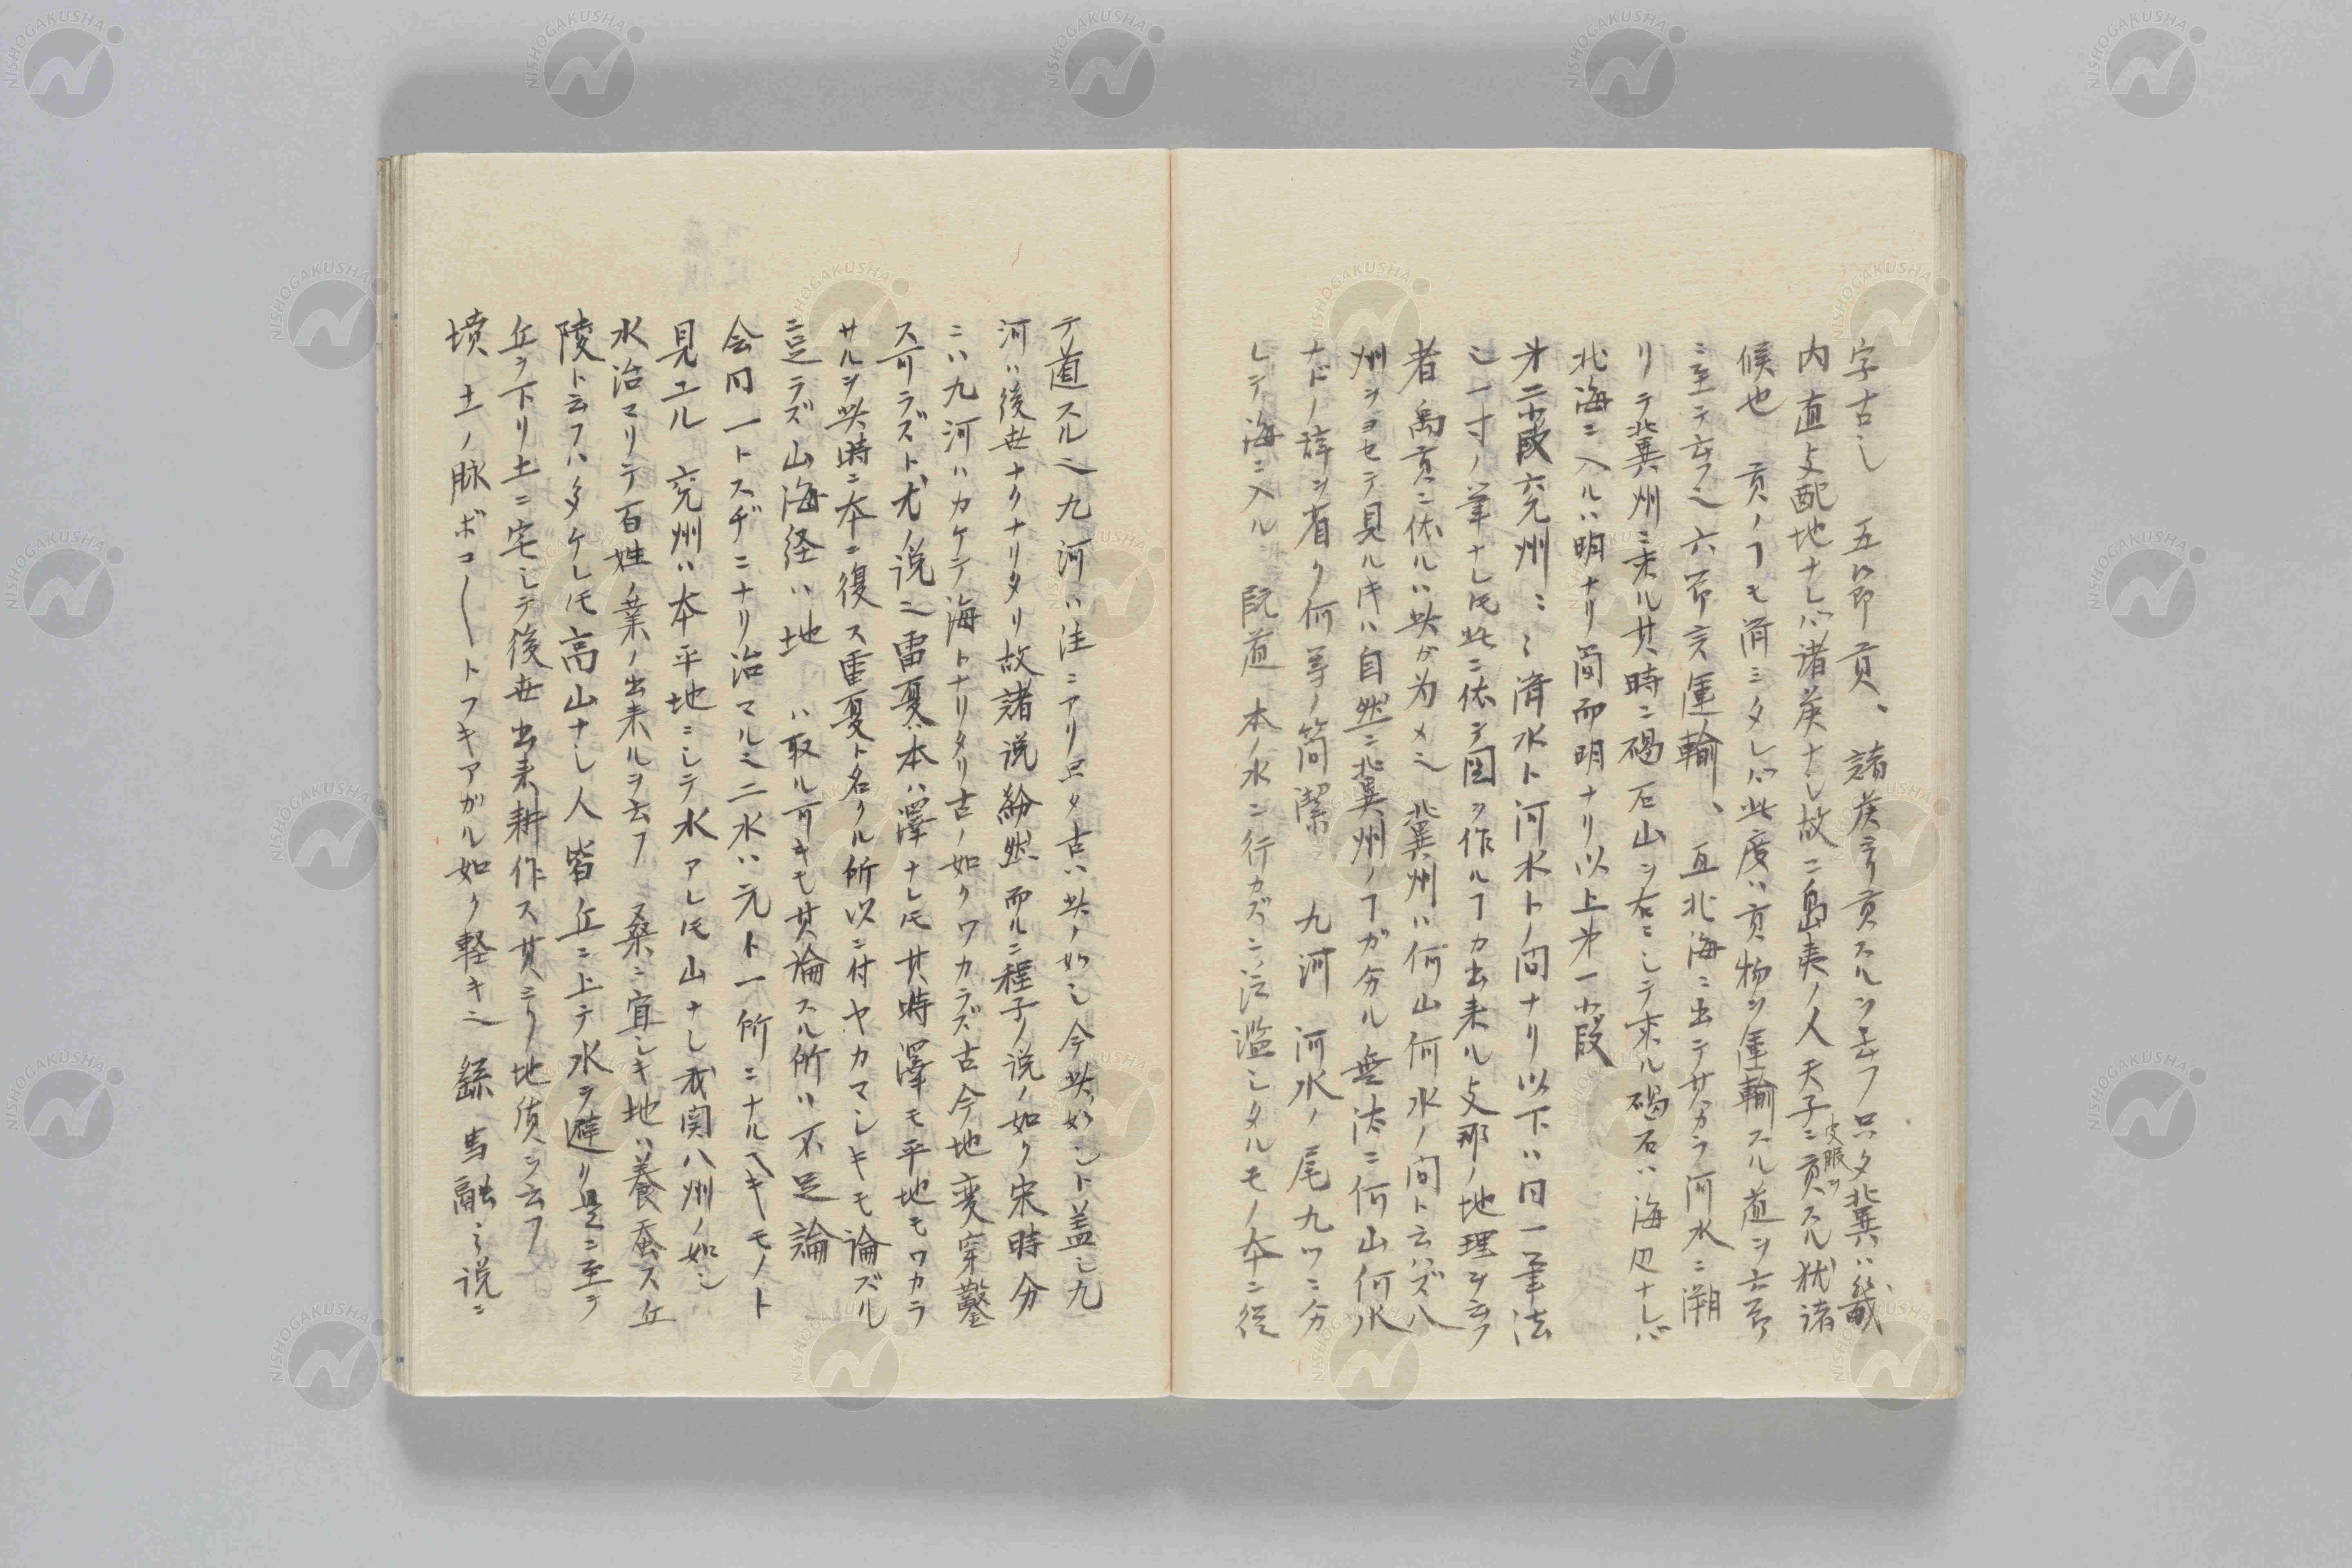 字古シ 五節貢、諸侯ヨリ貢スルヲ云フ只タ冀ハ畿
内直支配地ナレバ諸侯ナシ故ニ島夷ノ人天子ニ皮服ヲ貢スル猶諸
候也 貢ノヿモ前ミタレバ此度ハ貢物ヲ運輸スル道ヲ六節
ニ至テ云フ也六節言運輸、互北海ニ出テ其カラ河水ニ溯
リテ冀州ニ来ル其時ニ碣石山ヲ右ニシテ来ル碣石ハ海辺ナレバ
北海ニ入ルハ明ナリ簡而明ナリ以上第一小段
第二小段六兗州ミミ濟水ト河水トノ間ナリ以下ハ同一筆法
シ一寸ノ筆ナレ𪜈此ニ依テ図ヲ作ルヿカ出来ル支那ノ地理ヲ云フ
者禹貢ニ依ルハ此ガ為メ也 冀州ハ何山何水ノ間ト云ハズ八
州ヲヨセテ見ル時ハ自然ニ冀州ノヿガ分ル無法ニ何山何水
ナドノ辞ヲ省ク何等ノ簡潔 九河 河水ノ尾九ツニ分
レテ海ニ入ル 既道 本ノ水ニ行カズニ氾濫シタルモノ本ニ従
テ道スル也九河ハ注ニアリ只タ古ハ此ノ如シ今此ノ如シト蓋シ九
河ハ後世ナクナリタリ故諸説紛然而ルニ程子ノ説ノ如ク宋時分
ニハ九河ハカケテ海トナリタリ古ノ如クワカラズ古今地変穿鑿
ス可ラズトハ尤ノ説也雷夏ハ本ハ澤ナレ𪜈其時澤モ平地モワカラ
サルヲ此時ニ本ニ復ス重夏ト名クル所以ニ付ヤカマシキモ論ズル
ニ足ラズ山海経ハ地 ハ取ル可キモ其論スル所ハ不足論
会同一トスヂニナリ治マル也二水ハ元ト一所ニナルヘキモノト
見エル 兗州ハ本平地ニシテ水アレ𪜈山ナシ我関八州ノ如シ
水治マリテ百姓ノ業ノ出来ルヲ云フ 桑ニ宜シキ地ハ養蚕ス丘
陵ト云フハタケレ𪜈高山ナシ人皆丘ニ上テ水ヲ避リ是ニ至テ
丘ヲ下リ土ニ宅シテ後世出来耕作ス其ヨリ地質ヲ云フ
墳 土ノ脉ボコ〱トフキアガル如ク軽キ也 繇 馬融ミ説ニ